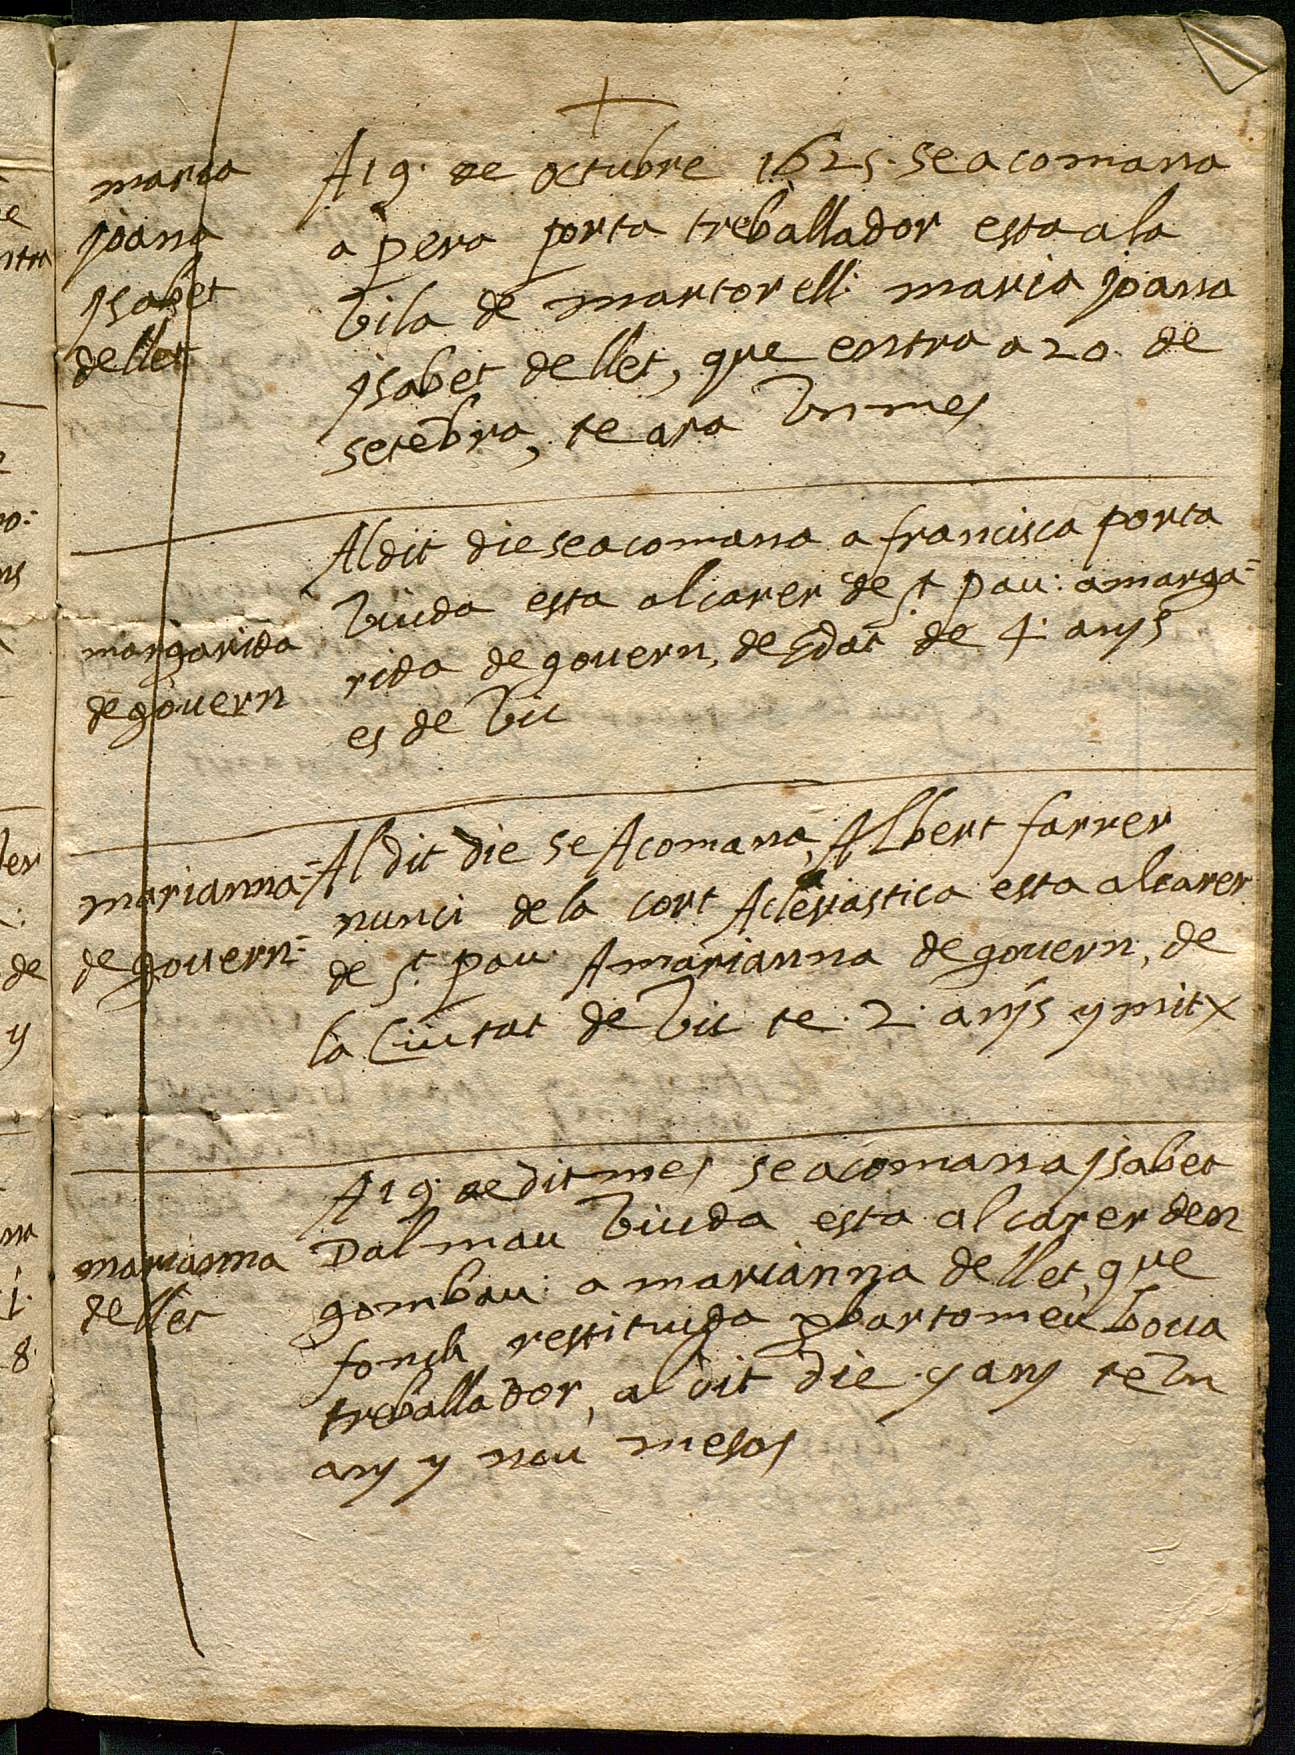 maria
joana
jsabet
de llet
A 19. de octubre 1625. se acomana
a pera porta treballador esta a la
vila de martorell. maria joana
jsabet de llet, que entra a 20 de
setebra, te ara vn mes
margarida
de gouern
Al dit die se acomana a francisca porta
viuda esta al carer de st pau: a marga=
rida de gouern, de Edat de 4. anys
es de vic
marianna=
de gouern=
Al dit die se Acomana, Albert farrer
nunci de la cort Aclesiastica esta al carer
de st pau A marianna de gouern, de
la Ciutat de vic te 2. anys y mitx
marianna
de llet
A 19. de dit mes se acomana jsabet
Dalmau viuda esta al carer den
gombau: a marianna de llet, que
fonch restituyda p bartomeu boua
treballador, al dit die y any te vn
any y nou mesos